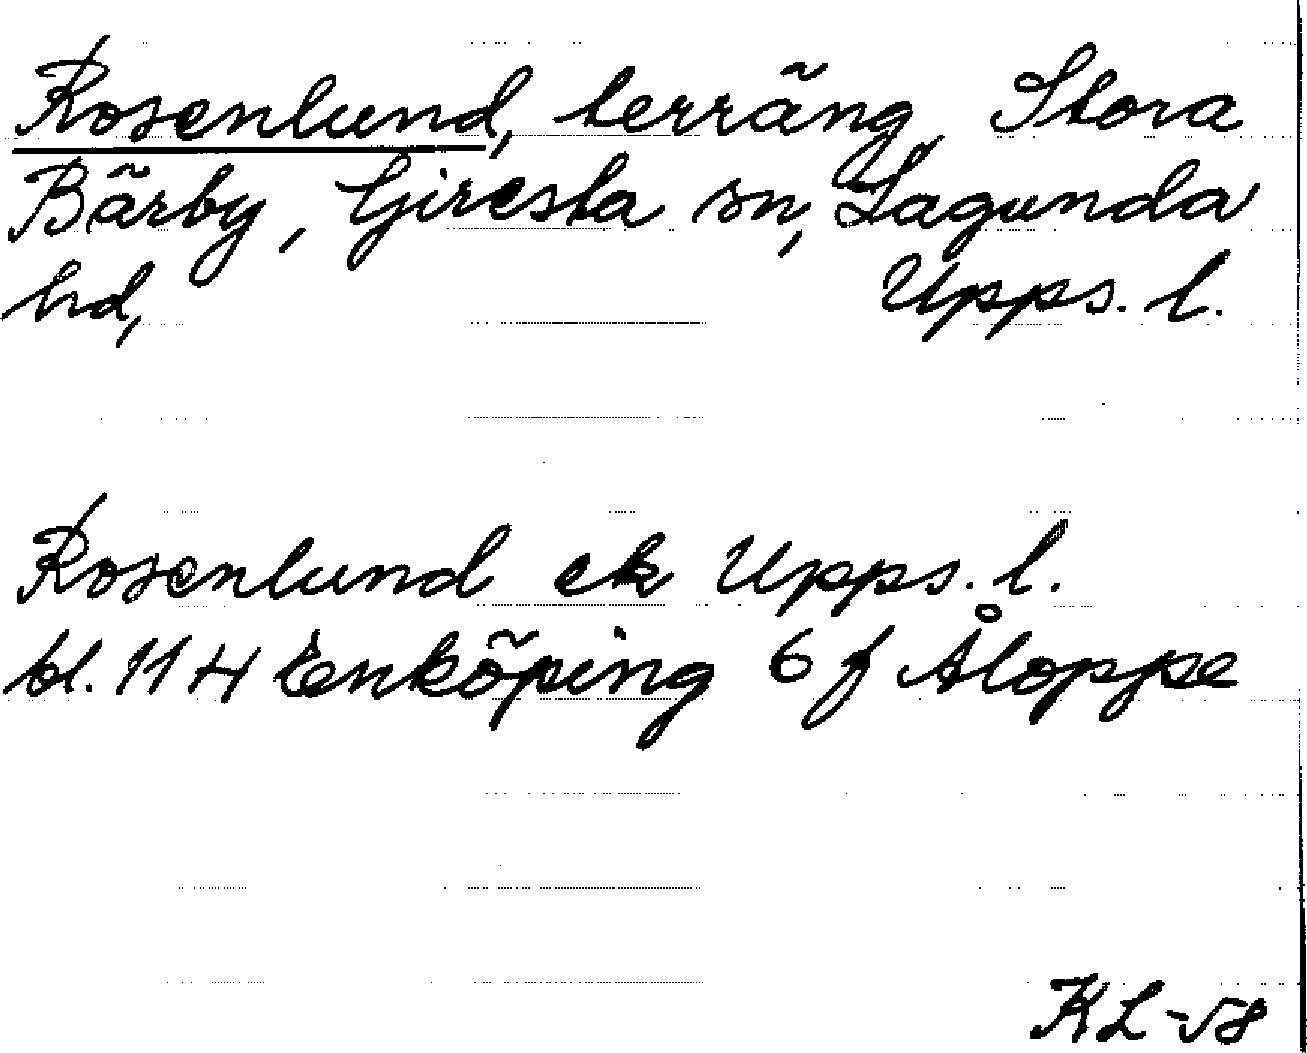 Rosenlund, terräng, Stora
Bärby, Giresta sn, Lagunda
hd, Upps. l.
Rosenlund ek Upps. l.
bl. 11 H Enköping 6 f Åloppe
KL-58